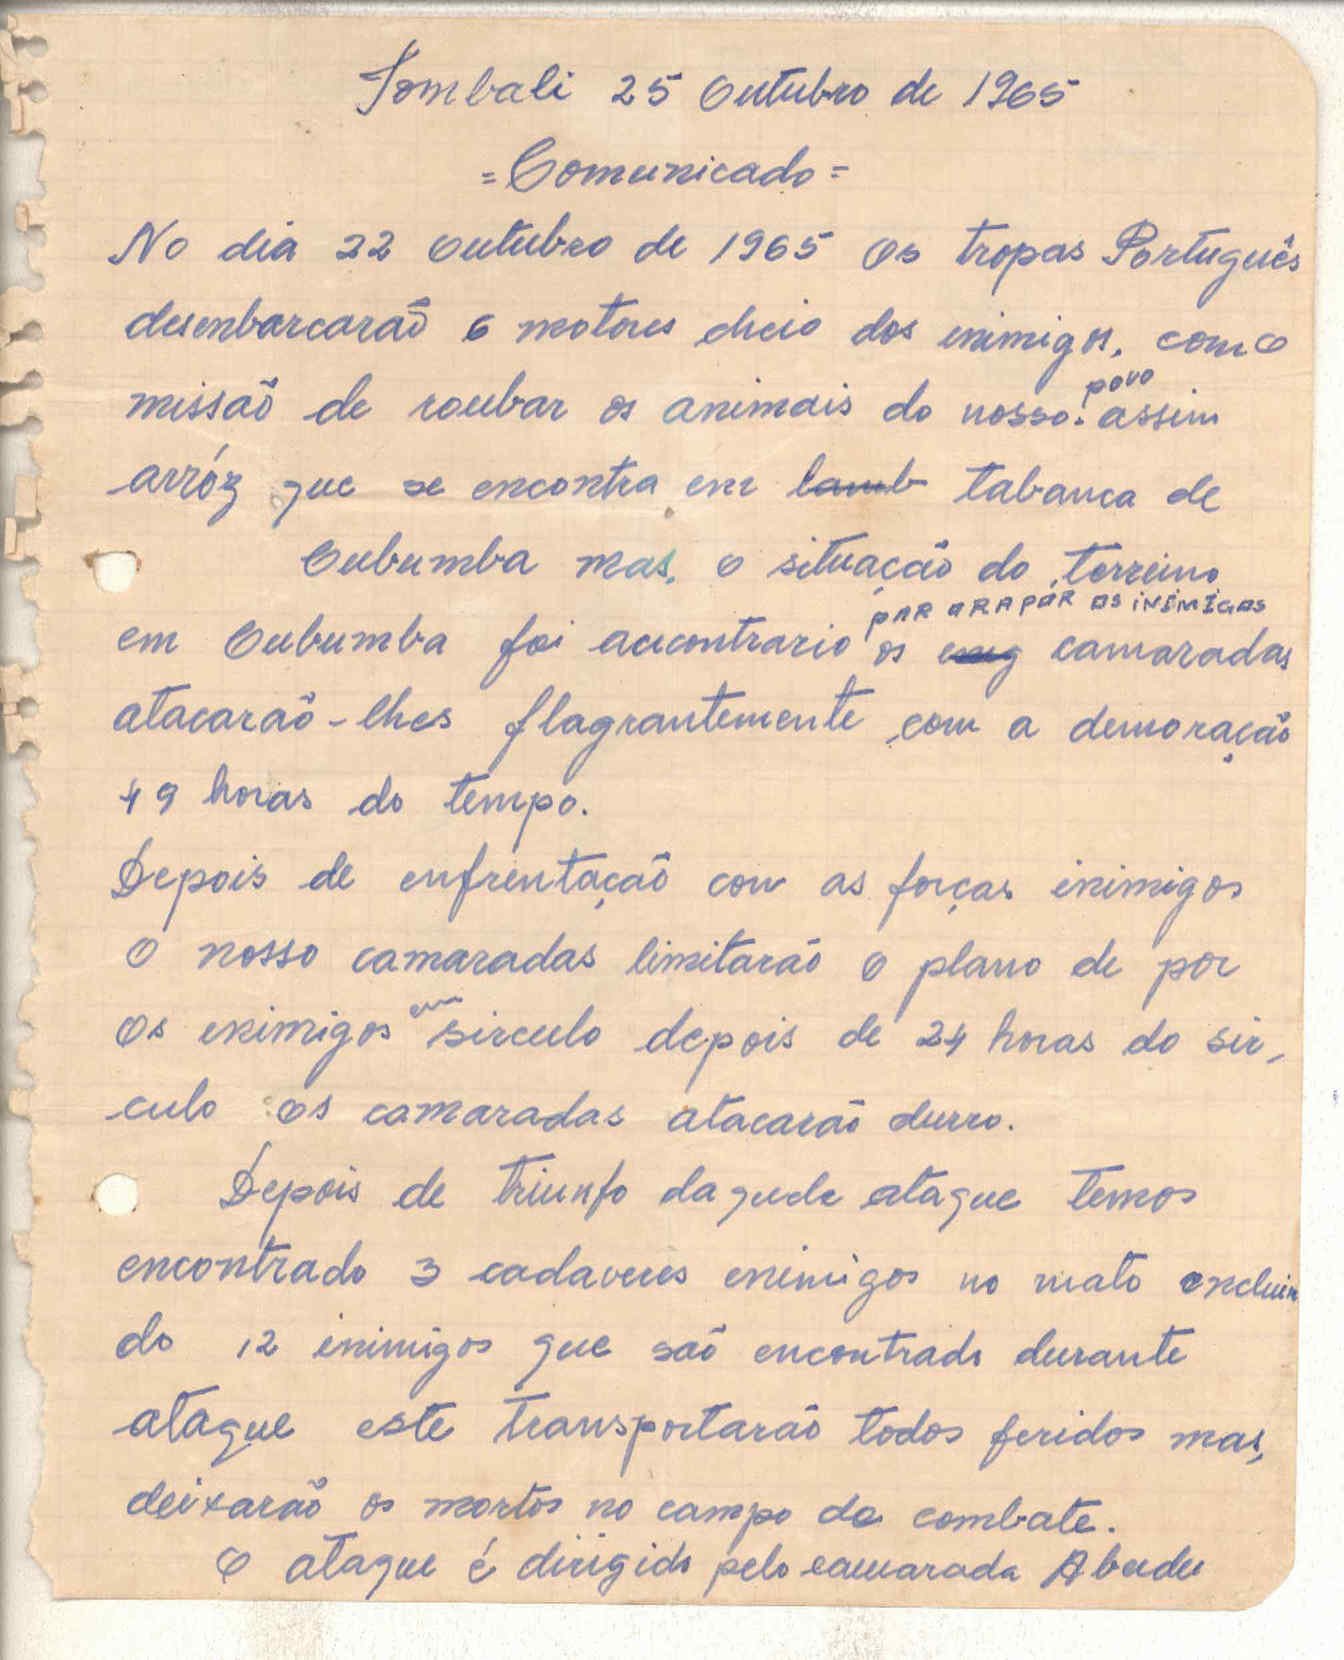 Tombali 25 Outubro de 1965
= Comunicado =
No dia 22 Outubro de 1965 os tropas Português
desenbarcaraõ 6 motores cheio dos enimigos, com o
missaõ de roubar os animais do nosso povo assim
arróz que se encontra em lamb tabanca de
Cubumba mas, o situação do terreino
PAR ARAPAR OS INIMIGOS
em Cubumba foi accontrario os emg camaradas
atacaraõ-lhes flagrantemente com a demoração
49 horas do tempo.
Depois de enfrentaçaõ com as forças inimigos
O nosso camaradas limitarão o plano de por
os enimigos em sirculo depois de 24 horas do sir-
culo os camaradas atacarão durro.
Depois de triunfo daquele ataque temos
encontrado 3 cadaveres enimigos no mato encluin
do 12 inimigos que saõ encontrado durante
ataque este transportarão todos feridos mas,
deixaraõ os mortos no campo de combate.
O ataque é dirigido pelo camarada Abudu